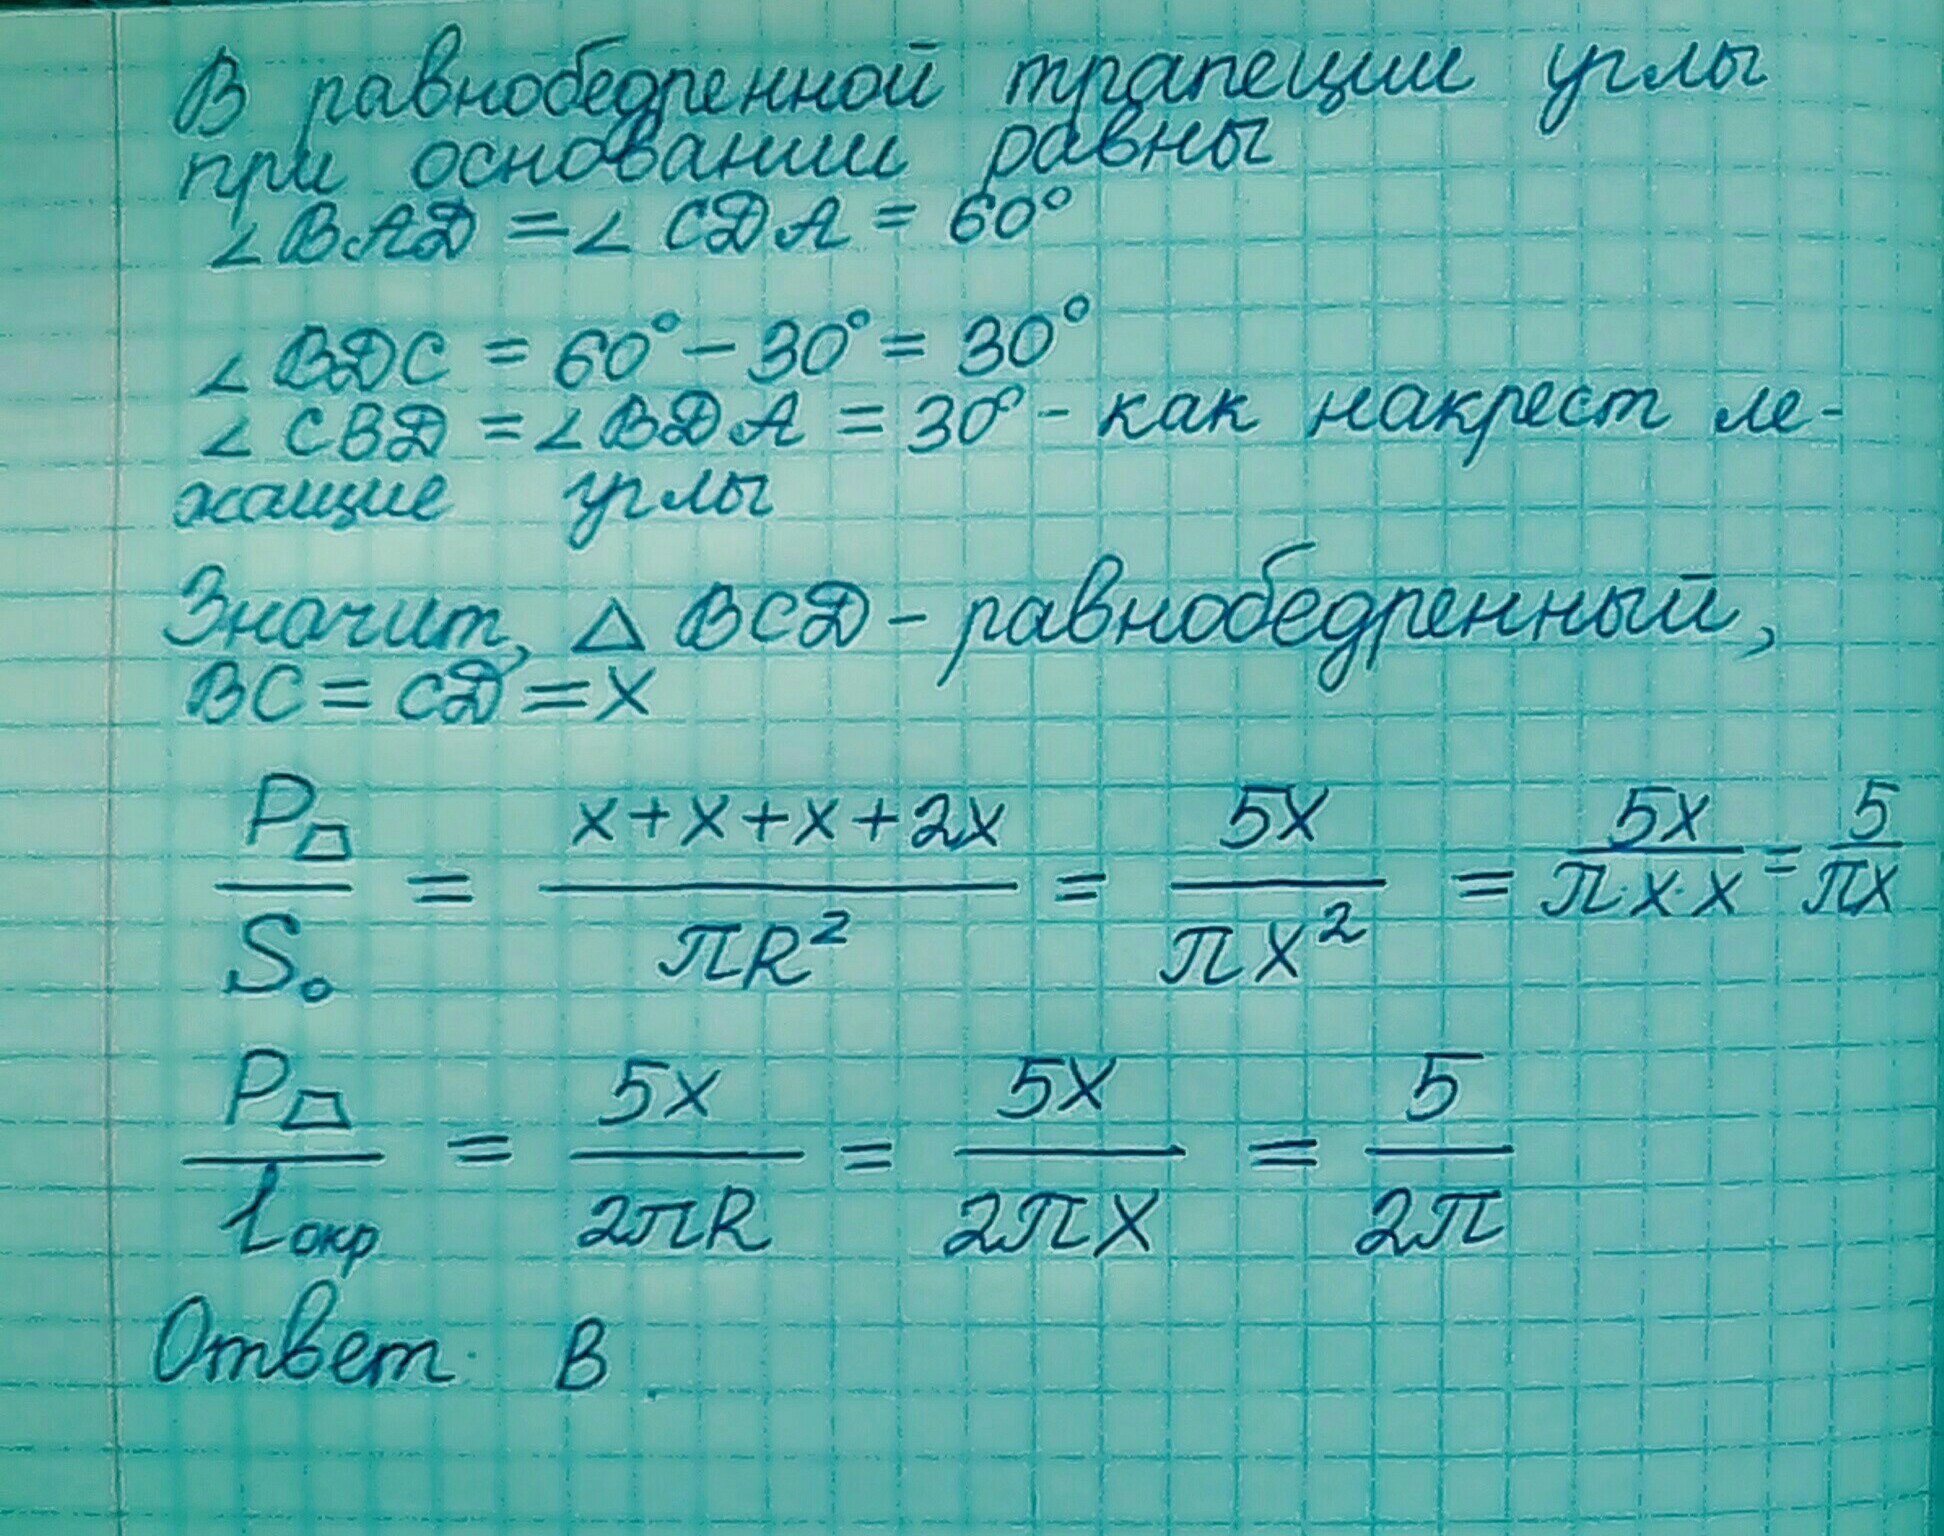 В равнобедренной трапеции углы
при основании равны
∠BAD = ∠CDA = 60°
∠BDC = 60° - 30° = 30°
∠CBD = ∠BDA = 30° - как накрест ле-
жащие углы
Значит, △BCD - равнобедренный,
BC = CD = x
P⏢/S₀ = (x+x+x+2x)/(πR²) = 5x/(πx²) = 5x/(π·x·x) = 5/(πx)
P⏢/lокр = 5x/(2πR) = 5x/(2πx) = 5/(2π)
Ответ: В.